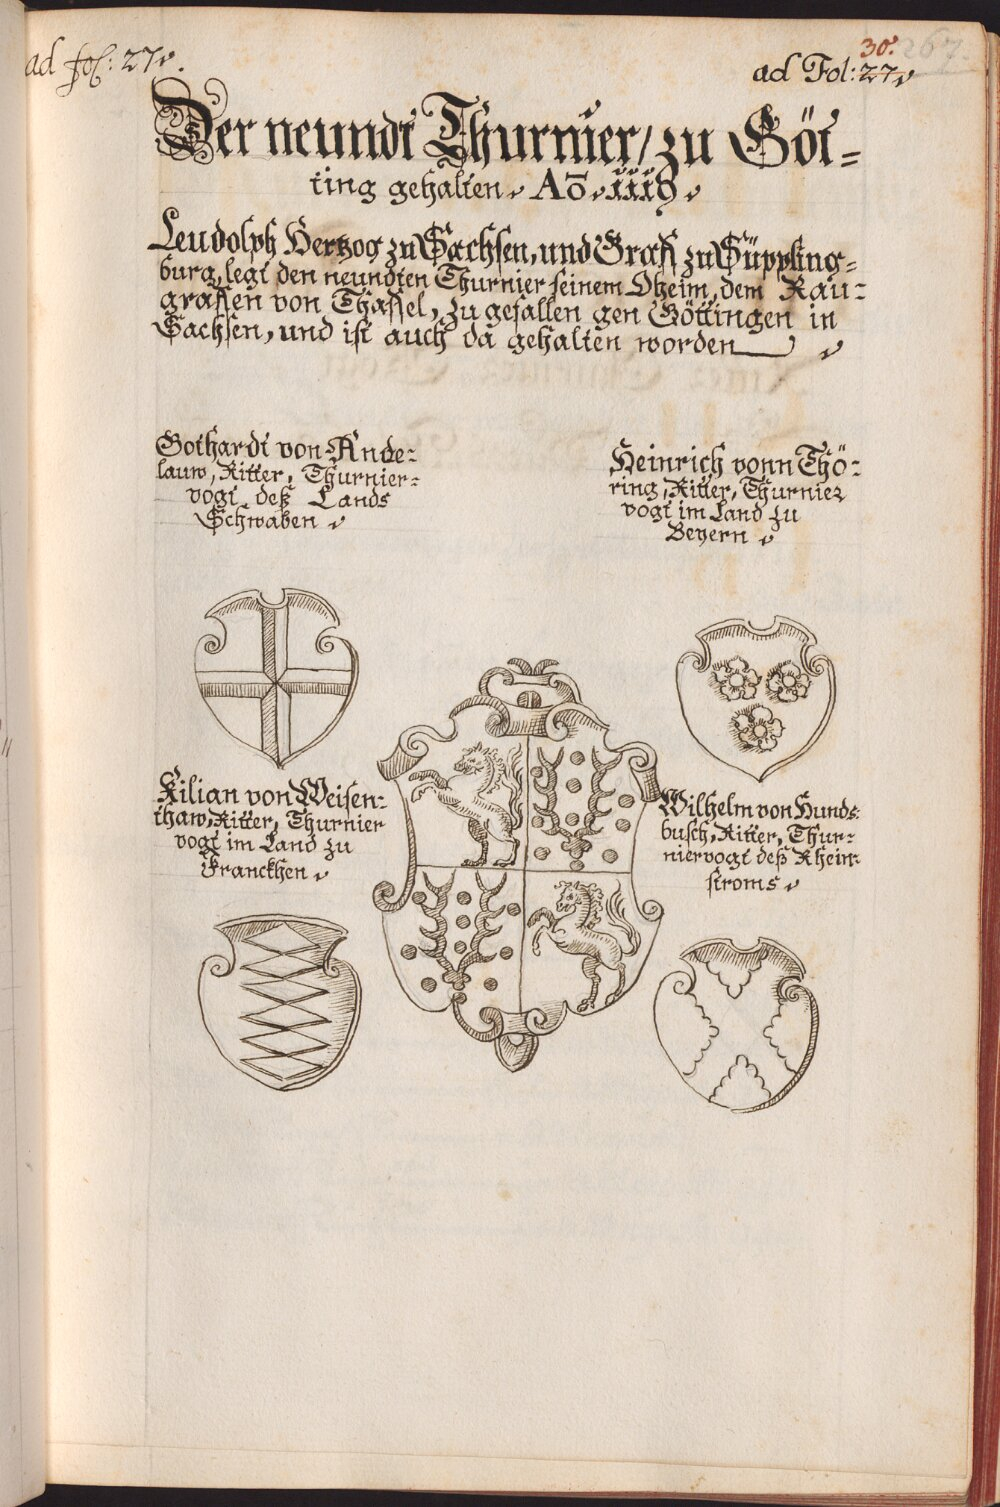 ad fol: 27.
30. 267.
ad Fol: 27
Der neundt Thurnier / zu Göt=
ting gehalten. Aō. 1119.
Leudolph Hertzog zu Sachsen, und Graff zu Süppling=
burg, legt den neundten Thurnier seinem Oheim, dem Rau=
graffen von Thassel, zu gefallen gen Göttingen in
Sachsen, und ist auch da gehalten worden
Gothardt von Ande=
lauw, Ritter, Thurnier=
vogt deß Lands
Schwaben
Heinrich vonn Thö=
ring, Ritter, Thurnier
vogt im Land zu
Beyern
Kilian von Weisen=
thaw, Ritter, Thurnier
vogt im Land zu
Franckhen
Wilhelm von Hunds=
busch, Ritter, Thur=
niervogt deß Rhein=
stroms